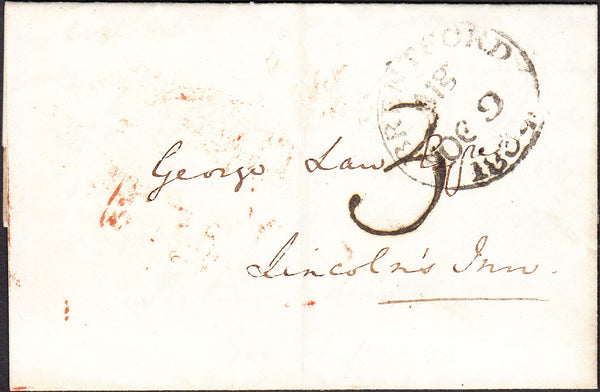 BRENTFORD
OC 9
1834
3
George Law Esqre
Lincoln's Inn.